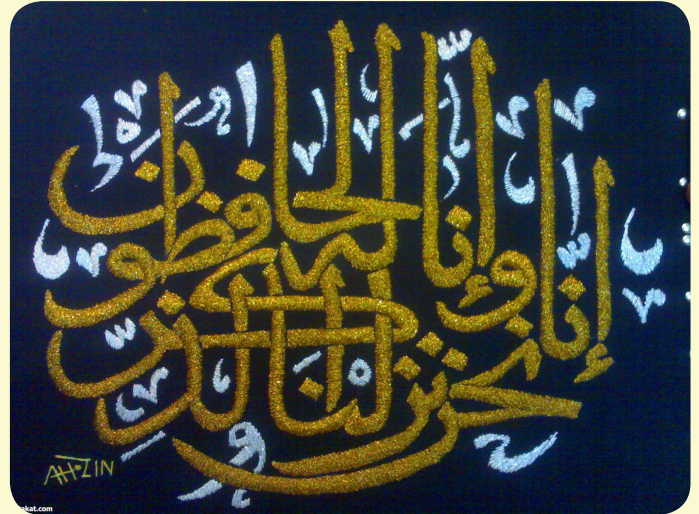 إنا نحن نزلنا الذكر وإنا له لحافظون
AH.ZIN
akat.com